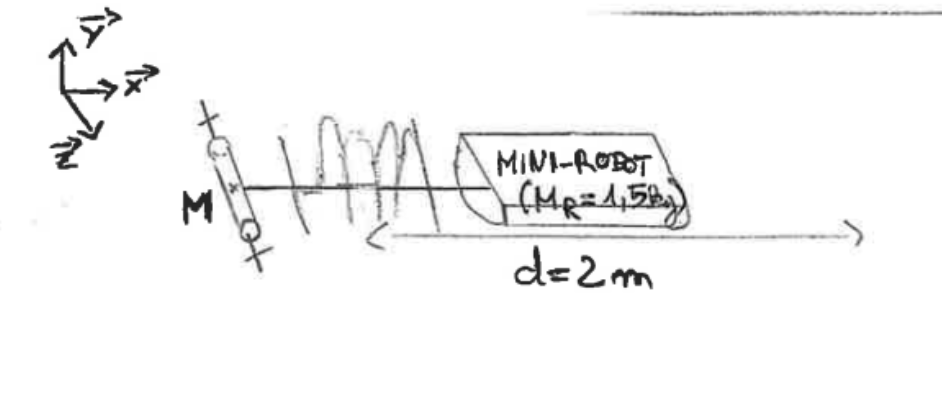 y
x
z
M
MINI-ROBOT
(M_R = 1,5kg)
d=2m